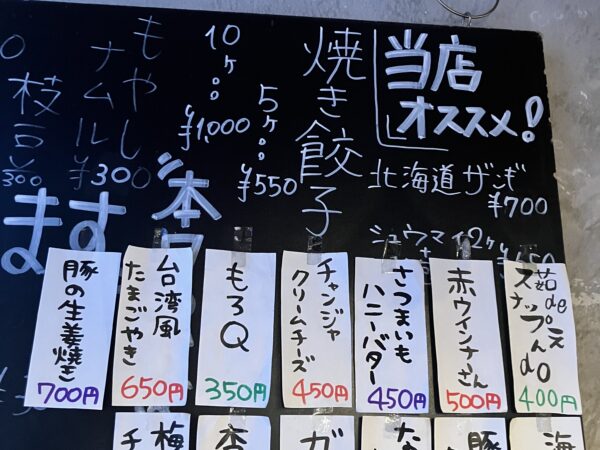 当店
オススメ!
北海道ザンギ
¥700
シュウマイ2ヶ
焼き餃子
5ヶ
¥550
10ヶ
¥1,000
もやし
ナムル
¥300
枝豆
¥300
本
ます
茹de
スナップえんdo
400円
赤ウインナーさん
500円
さつまいも
ハニーバター
450円
チャンジャ
クリームチーズ
450円
もろQ
350円
台湾風
たまごやき
650円
豚の生姜焼き
700円
海
豚
な
ガ
杏
梅
チ